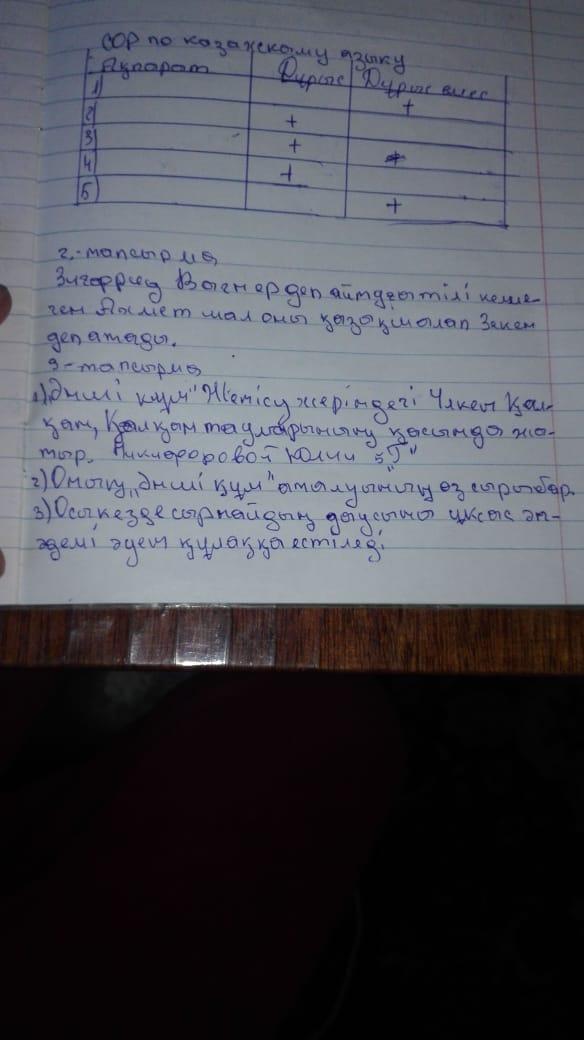 СОР по казахскому языку
Ақпарат Дұрыс Дұрыс емес
1) +
2) +
3) +
4) +
5) +
2-тапсырма
Зигфрид Вагнер деп айтуға тілі келме-
ген Ахмет шал оны қазақшалап Зекен
деп атады.
3-тапсырма
1) Әнші құм "Жетісу жеріндегі Үлкен Қал-
қан, Қалқан тауларының қасында жа-
тыр. Никифоровой Юлии 5 "Г"
2) Оның „Әнші құм" аталуының өз сыры бар.
3) Осы кезде сырнайдың даусына ұқсас ән-
әдемі әуен құлаққа естіледі.